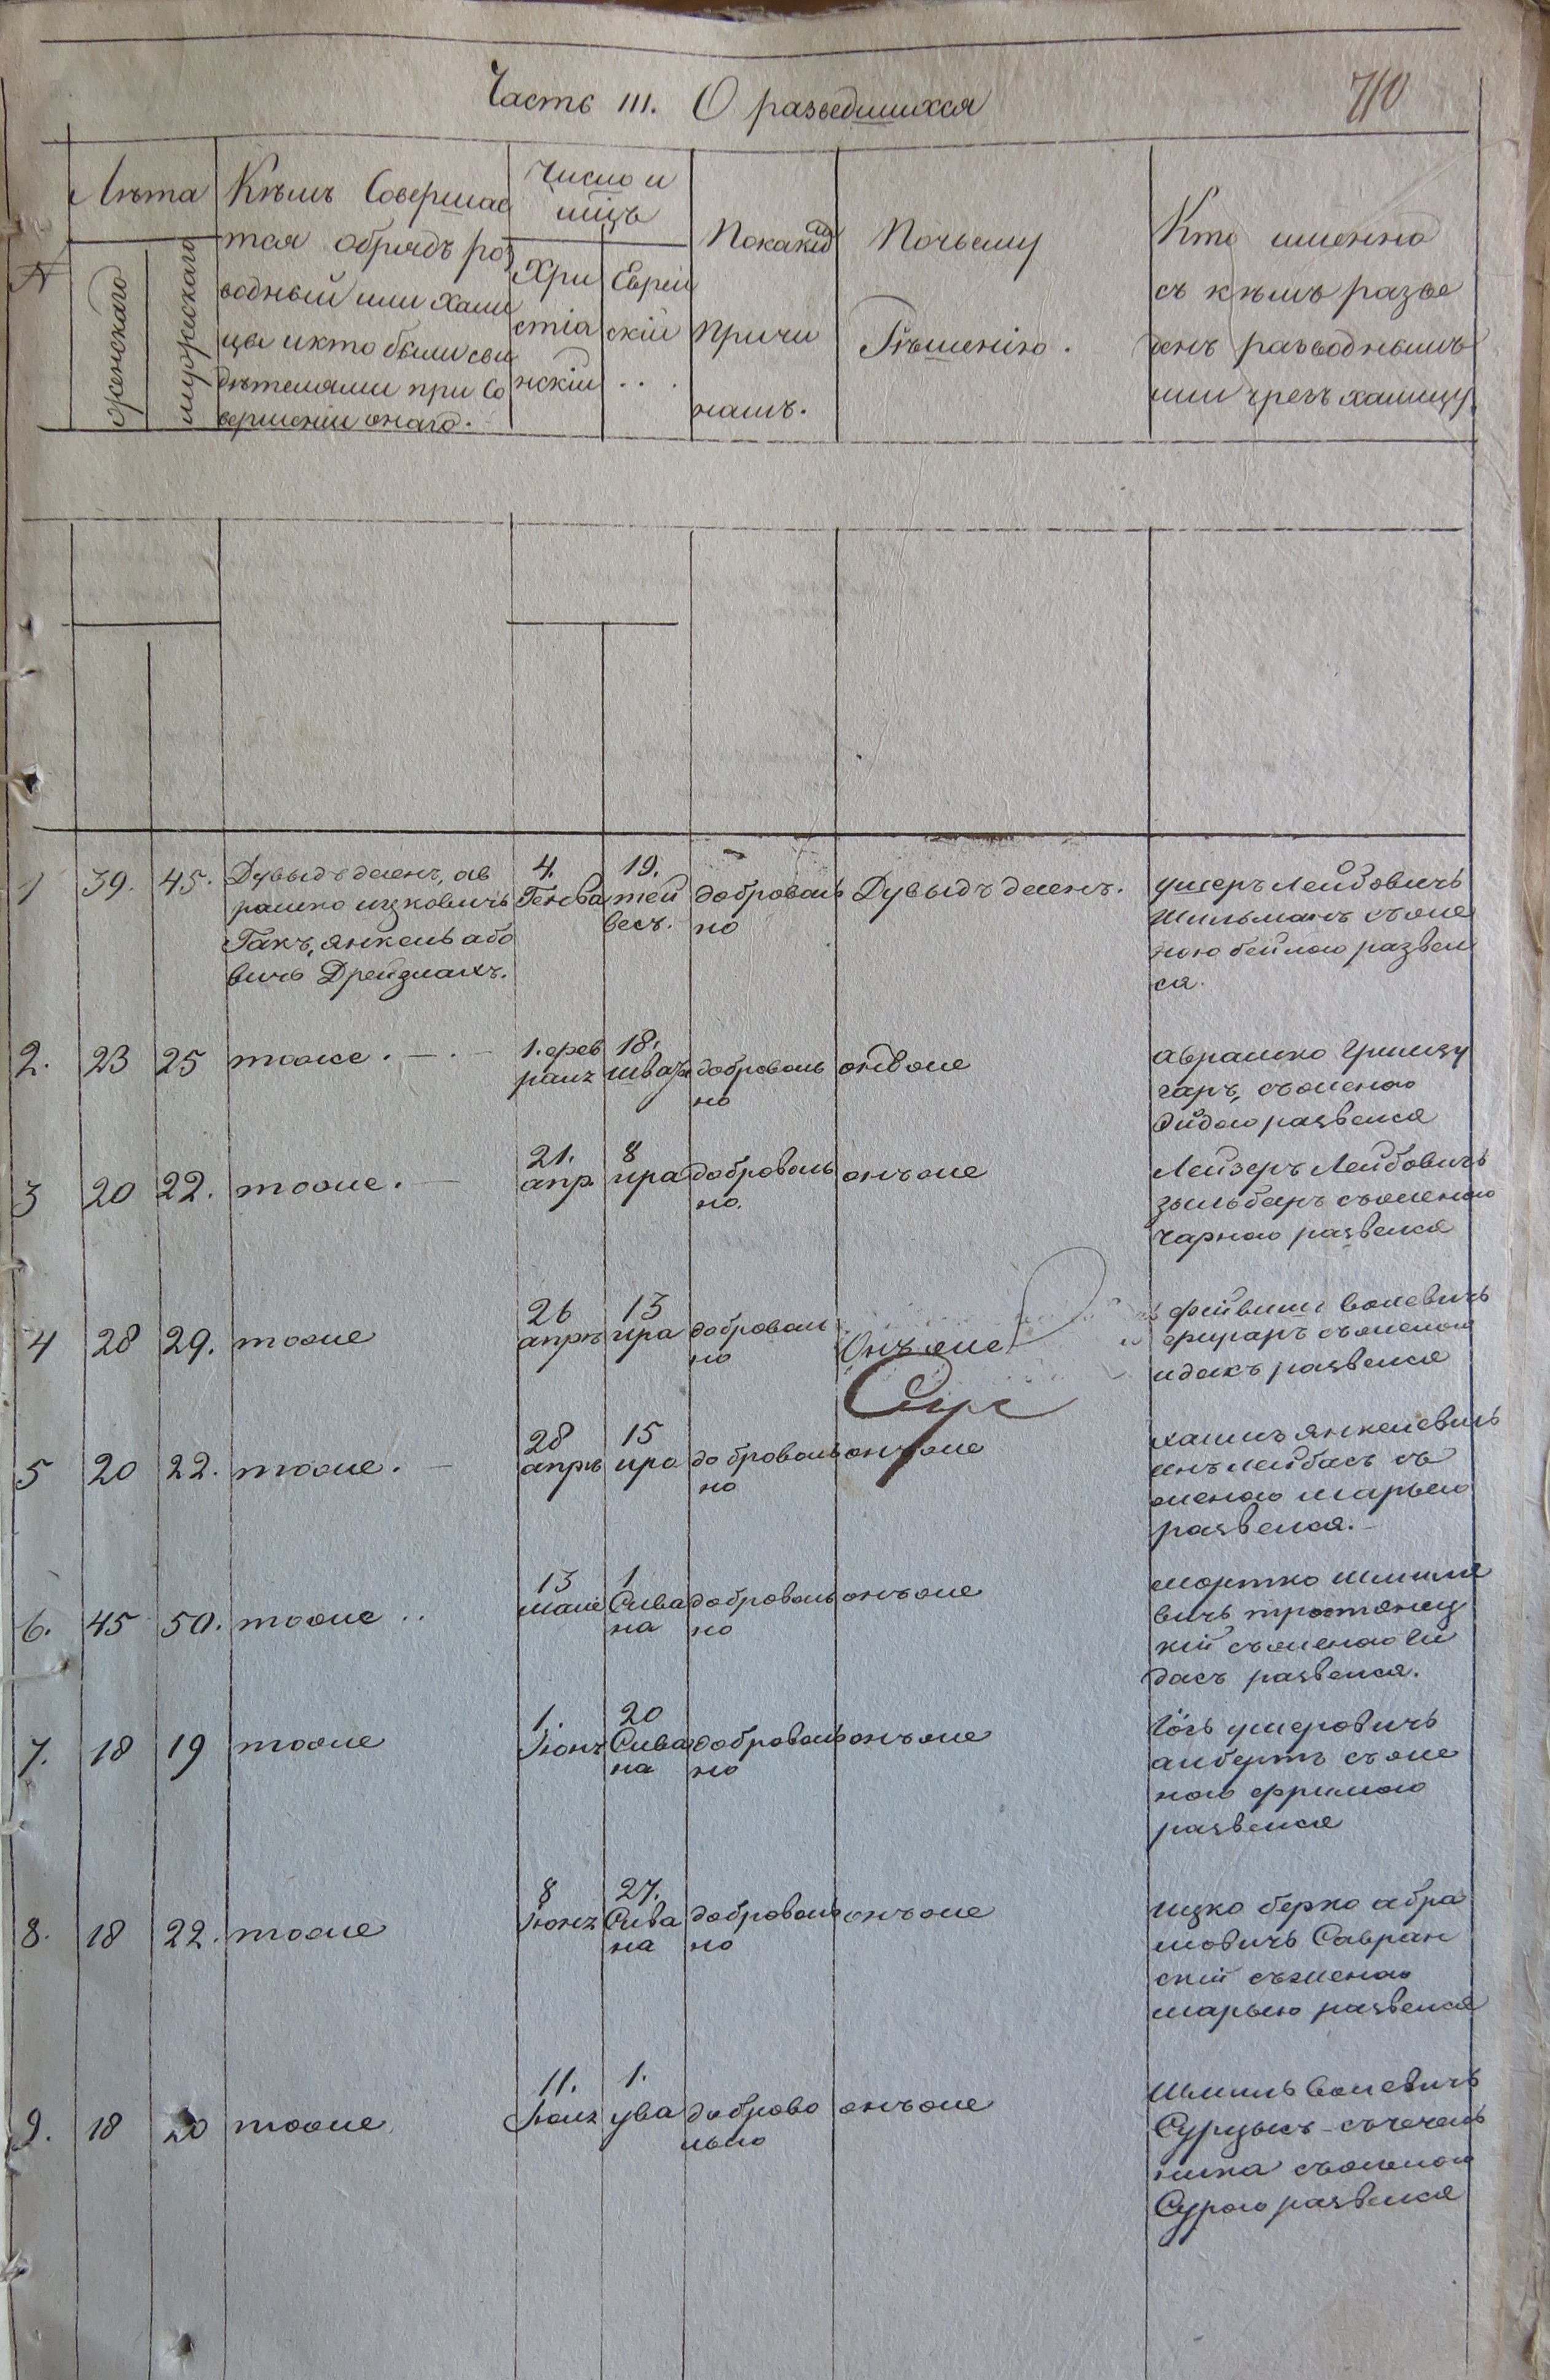 Часть III. О разведшихся
710
№
Лѣта
женскаго
мужескаго
Кѣмъ Совершае
тся обрядъ роз
водный или хали
цы и кто были сви
дѣтелями при со
вершеніи онаго.
Число и
мѣцъ
Хри
стіа
нскій
Еврей
скій
По какимъ
причи
намъ.
Почьему
Рѣшенію.
Кто именно
съ кѣмъ разве
денъ разводнымъ
или чрезъ халицу
1
39.
45.
Дувыдъ десенъ, ав
рамко ицковичъ
Гакъ, янкель або
вичъ Дрейзманъ.
4.
Генва
19.
тей
весъ.
доброволь
но
Дувыдъ десенъ.
ушеръ Лейбовичъ
Шильманъ съ же
ною бейлою развел
ся.
2.
23
25
тоже.
1. фев
рали
18.
шва
доброволь
но
онъ же
аврамко
гаръ, съ женою
развелся
3
20
22.
тоже.
21.
апр
8
ира
доброволь
но.
онъ же
Лейзеръ Лейбовичъ
зильберъ съ женою
Чарною развелся
4
28
29.
тоже
26
апрѣ
13
ира
доброволь
но
Онъ же
фейвишъ волевичъ
съ женою
развелся
5
20
22.
тоже.
28
апрѣ
15
ира
доброволь
но
онъ же
хаимъ янкелевичъ
съ
женою марьею
развелся.
6.
45
50.
тоже
13
мае
1
Сива
на
доброволь
но
онъ же
мортко шмиле
вичъ тростянец
кій съ женою
развелся.
7.
18
19
тоже
1.
Іюнь
20
Сива
на
доброволь
но
онъ же
Іось ушеровичъ
албертъ съ же
ною фримою
развелся
8.
18
22.
тоже
8
Іюнь
27.
Сива
на
доброволь
но
онъ же
Ицко берко абра
мовичъ Савран
скій съ женою
марьею развелся
9.
18
20
тоже
11.
Іюнь
1.
ува
доброво
льно
онъ же
Шмиль волевичъ
съ чечель
ника съ женою
Сурою развелся